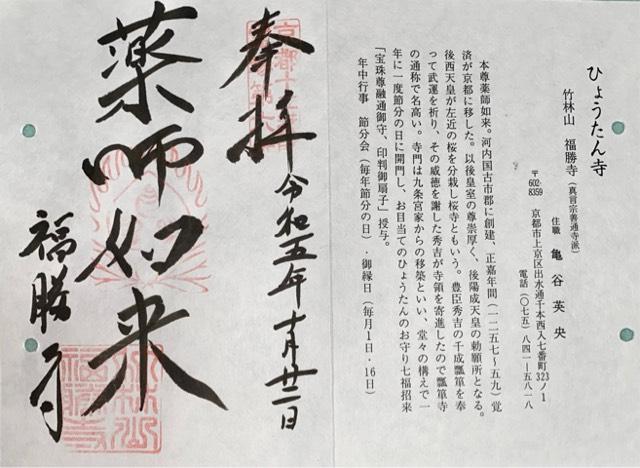 ひょうたん寺
竹林山 福勝寺(真言宗善通寺派)
住職 亀谷英央
〒602-8359 京都市上京区出水通千本西入七番町323ノ1
電話(〇七五)八四一ー五八一八
本尊薬師如来。河内国古市郡に創建、正嘉年間(一二五七〜五九)覚
済が京都に移した。以後皇室の尊崇厚く、後陽成天皇の勅願所となる。
後西天皇が左近の桜を分栽し桜寺ともいう。豊臣秀吉の千成瓢箪を奉
って武運を祈り、その威徳を謝した秀吉が寺領を寄進したので瓢箪寺
の通称で名高い。寺門は九条宮家からの移築といい、堂々の構えで一
年に一度節分の日に開門し、お目当てのひょうたんのお守り七福招来
「宝珠尊融通御守、印判御扇子」授与。
年中行事 節分会(毎年節分の日)・御縁日(毎月1日・16日)
奉拝 令和五年十月廿二日
薬師如来
福勝寺